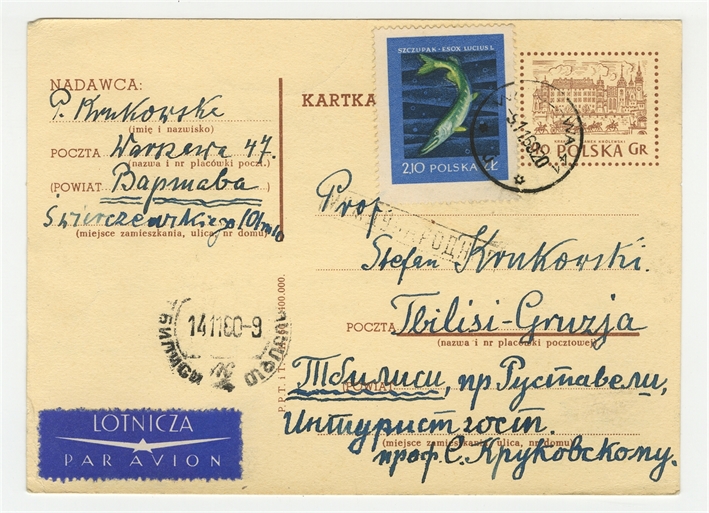 NADAWCA:
P. Krukowska
(imię i nazwisko)
POCZTA Warszawa 47.
(nazwa i nr placówki poczt.)
(POWIAT) Варшава
Świerczewskiego
(miejsce zamieszkania, ulica, nr domu)
KARTKA
SZCZUPAK - ESOX LUCIUS L.
2,10 POLSKA ZŁ
POLSKA GR
Prof.
Stefan Krukowski.
POCZTA Tbilisi-Gruzja
(nazwa i nr placówki pocztowej)
(POWIAT) Тбилиси, пр Руставели,
Интурист гост.
(miejsce zamieszkania, ulica, nr domu)
проф. С. Круковскому.
14 11 60-9
ТБИЛИСИ
LOTNICZA
PAR AVION